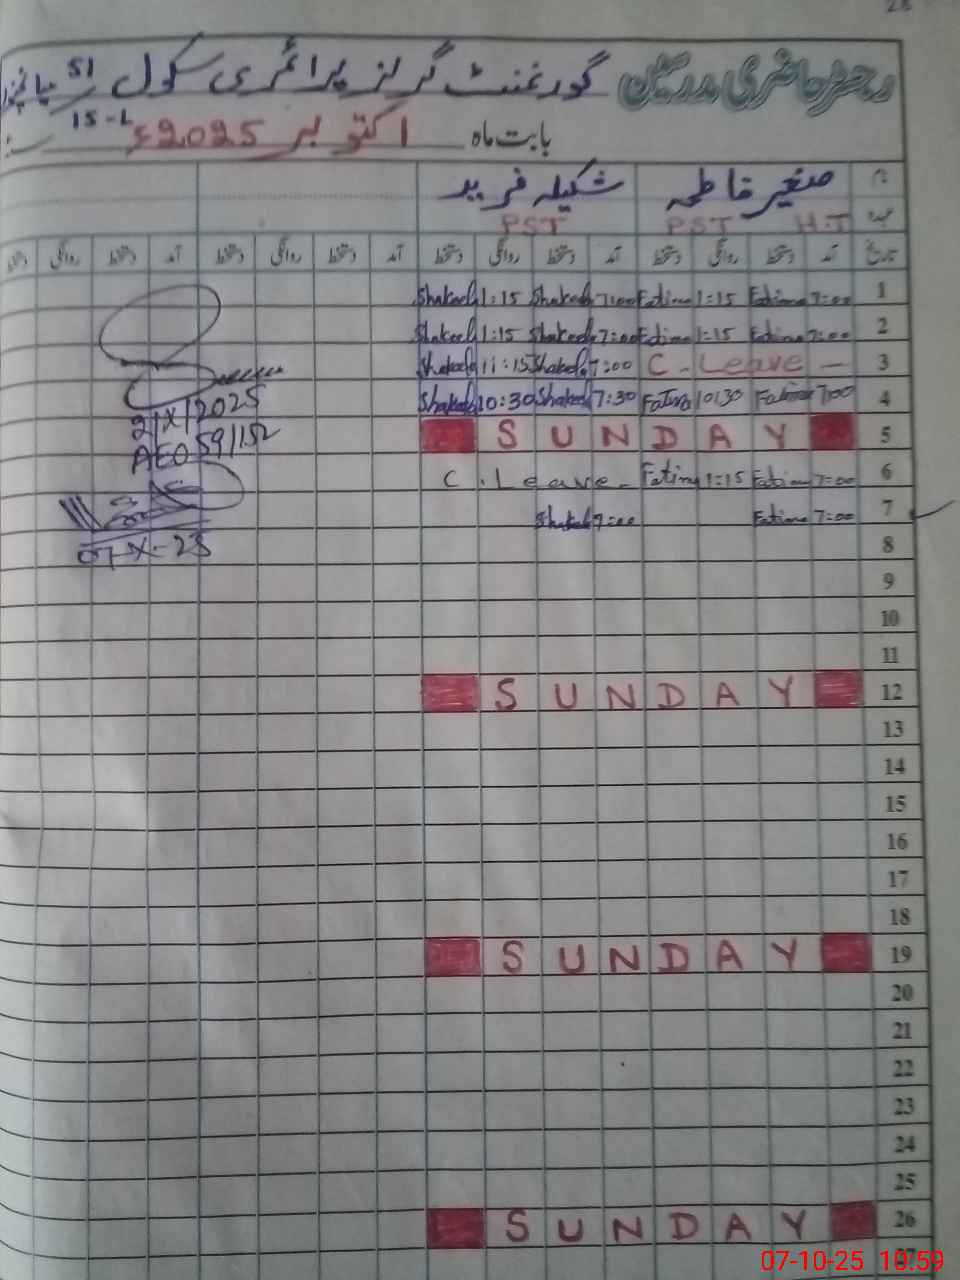 رجسٹر حاضری مدرسین گورنمنٹ گرلز پرائمری سکول 51
15-L
بابت ماہ اکتوبر 2025ء
نام صغیر فاطمہ شکیلہ فرید
عہدہ H.T PST PST
تاریخ آمد دستخط روانگی دستخط آمد دستخط روانگی دستخط آمد دستخط روانگی دستخط آمد دستخط روانگی دستخط
1 7:00 Fatima 1:15 Fatima 7:00 Shakeel 1:15 Shakeel
2 7:00 Fatima 1:15 Fatima 7:00 Shakeel 1:15 Shakeel
3 C. Leave - 7:00 Shakeel 11:15 Shakeel
4 7:00 Fatima 10:30 Fatima 7:30 Shakeel 10:30 Shakeel
5 SUNDAY
6 7:00 Fatima 1:15 Fatima C. Leave -
7 7:00 Fatima 7:00 Shakeel
8
9
10
11
12 SUNDAY
13
14
15
16
17
18
19 SUNDAY
20
21
22
23
24
25
26 SUNDAY
27
2/X/2025
AEO 59/152
07-X-25
07-10-25 10:59